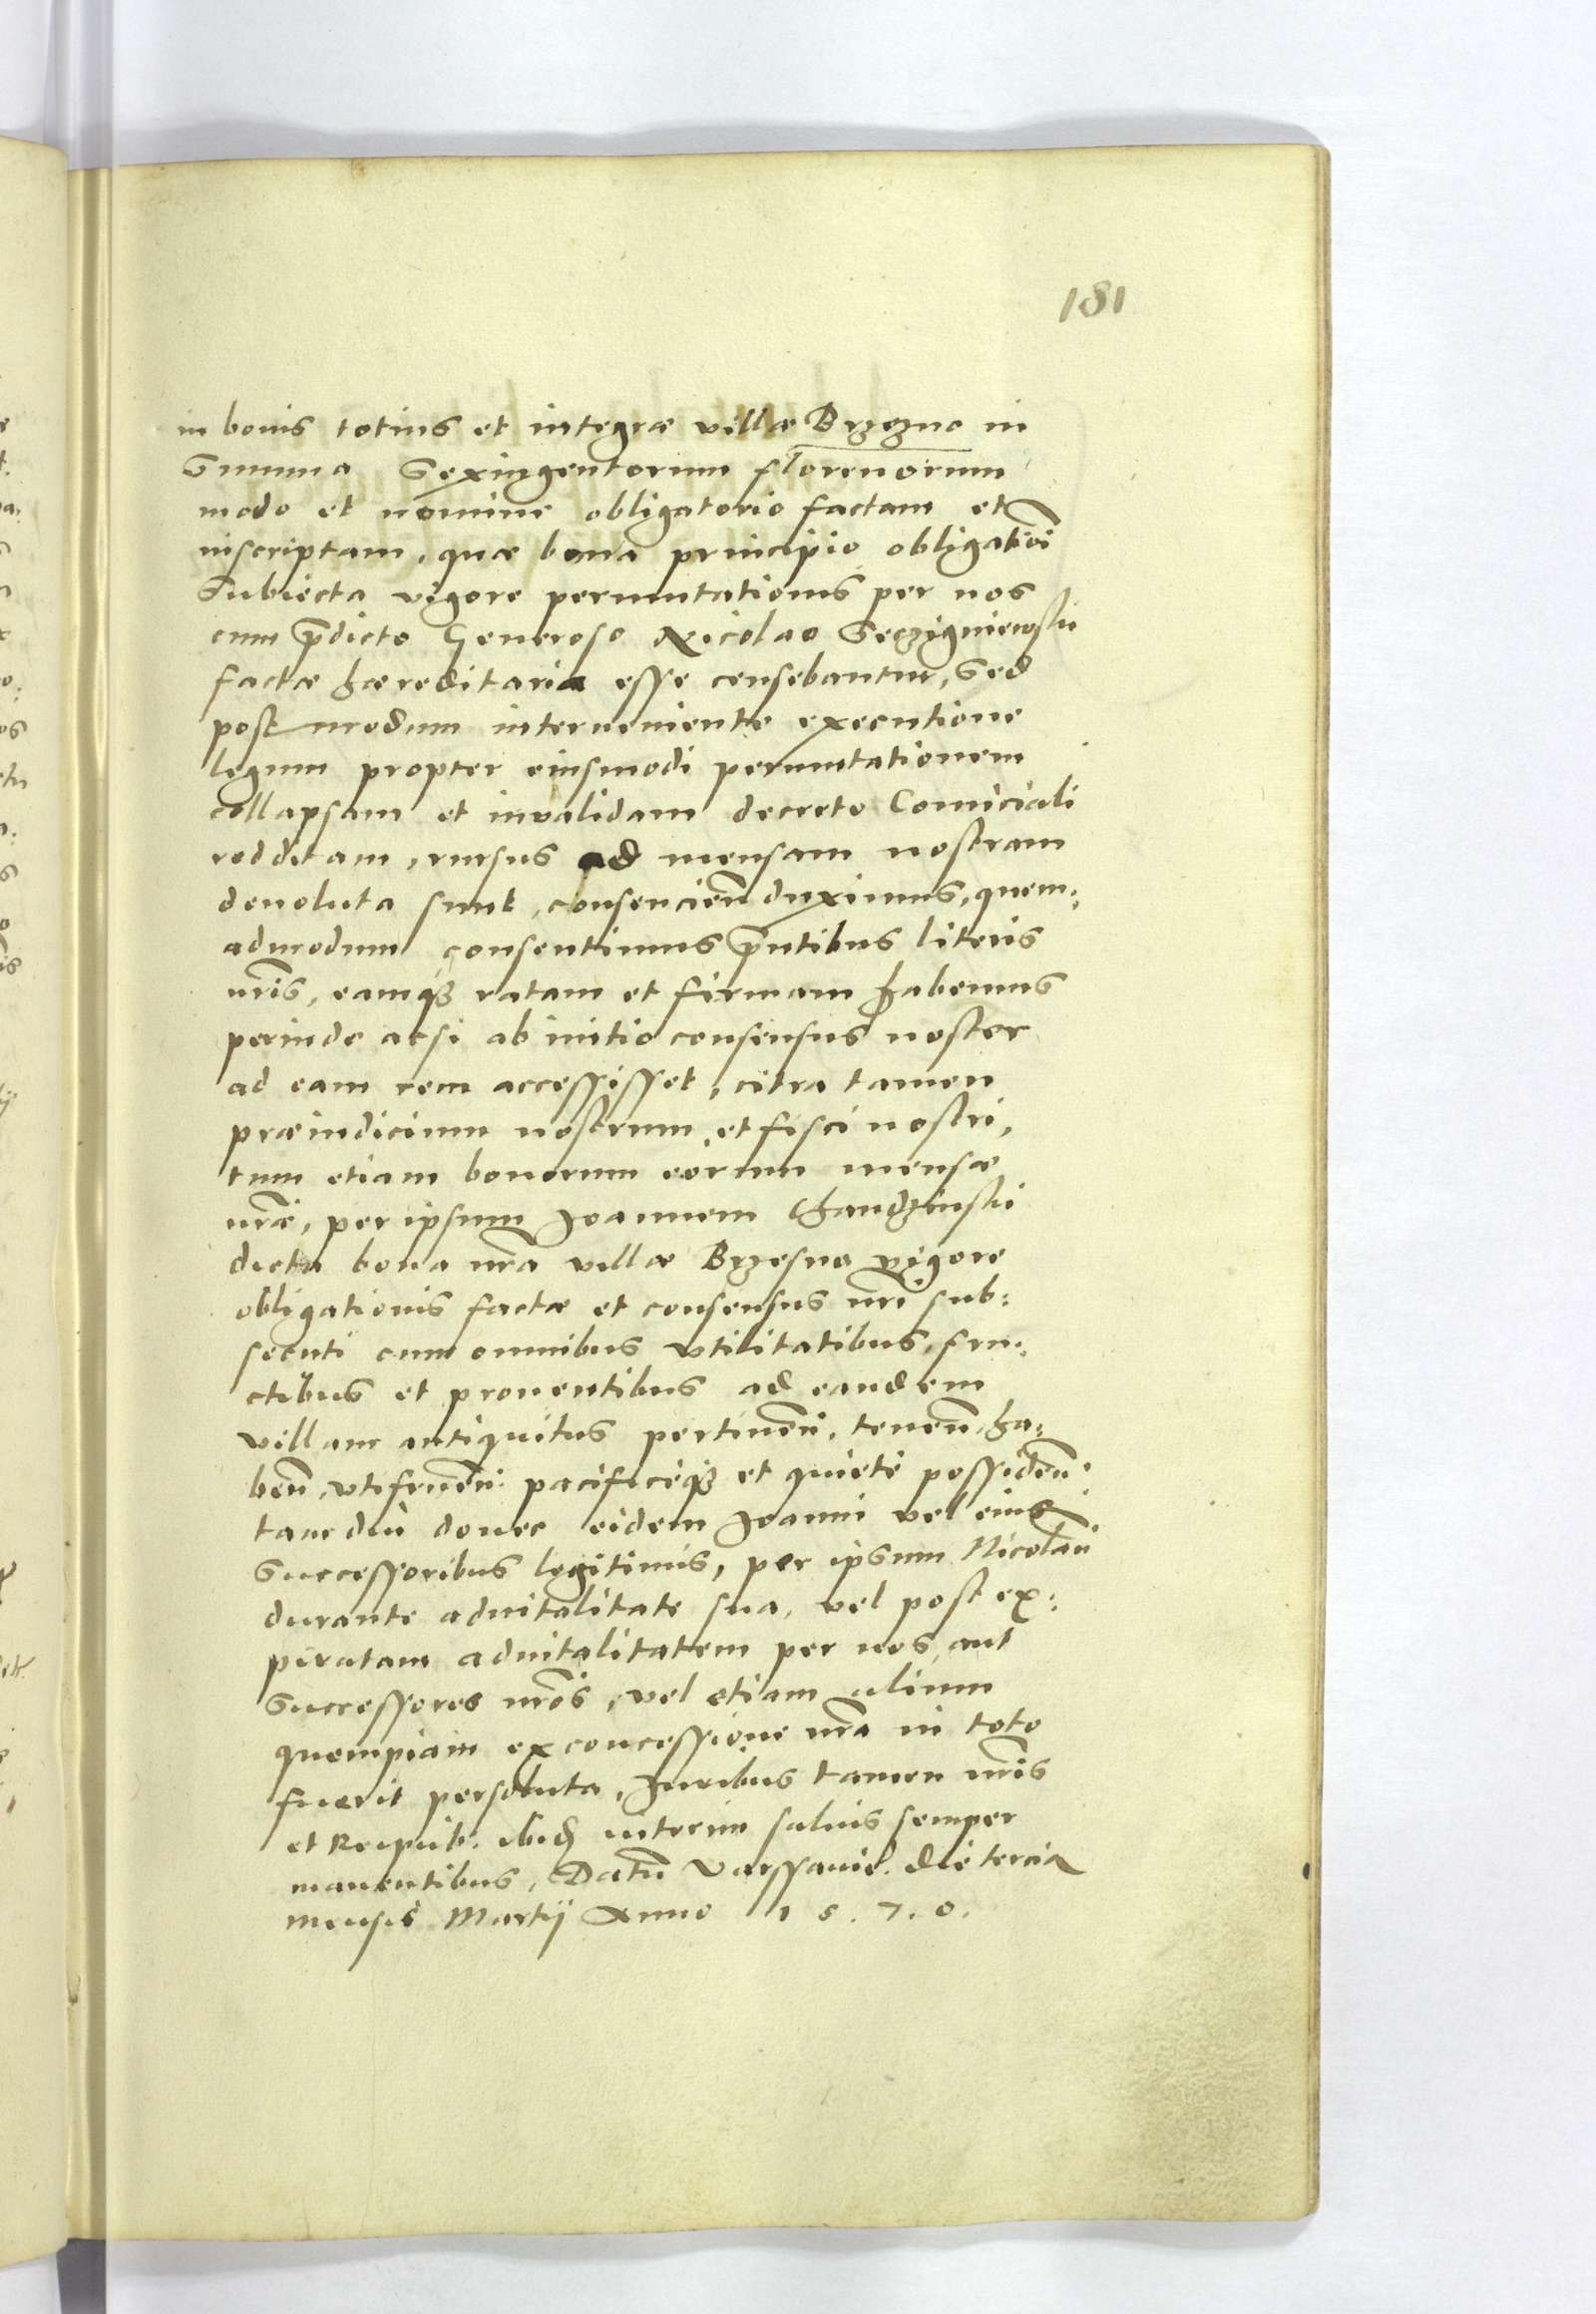 181
in bonis totius et integræ villæ Brzezno in
Summa Sexingentorum florenorum
modo et nomine obligatorio factam et
inscriptam, quæ bona principio obligatiōi
Subiecta vigore permutationis per nos
cum p̄dicto Generoso Nicolao
factæ hæreditaria esse censebantur, Sed
post modum interueniente executione
legum propter eiusmodi permutationem
collapsam et inualidam decreto Comiciali
redditam, rursus ad mensam nostram
deuoluta sunt, consencien̄ duximus, quem:
admodum consentimus p̄ntibus literis
nr̄is, eamqȝ ratam et firmam habemus
perinde acsi ab initio consensus noster
ad eam rem accessisset, citra tamen
præiudicium nostrum et fisci nostri,
tum etiam bonorum eorum mensæ
nr̄æ, per ipsum Joannem Chandzinski
dicta bona nr̄a villæ Brzesno vigore
obligationis factæ et consensus nr̄i sub:
secuti cum omnibus vtilitatibus, fru:
ctibus et prouentibus ad eandem
villam antiquitus pertinen̄. tenen̄, ha:
ben̄, vtifruen̄. pacificeqȝ et quiete possiden̄.
tam diu donec eidem Joanni vel eius
Successoribus legitimis, per ipsum Nicolaū
durante aduitalitate sua, vel post ex:
piratam aduitalitatem per nos aut
Successores nr̄os, vel etiam alium
quempiam ex concessione nr̄a in toto
fuerit persoluta, Juribus tamen nr̄is
et Reipub. ibidȝ interim saluis semper
manentibus, Datū Varssauiæ. die tercia
mensis Martij Anno 1 5 . 7 . 0 .